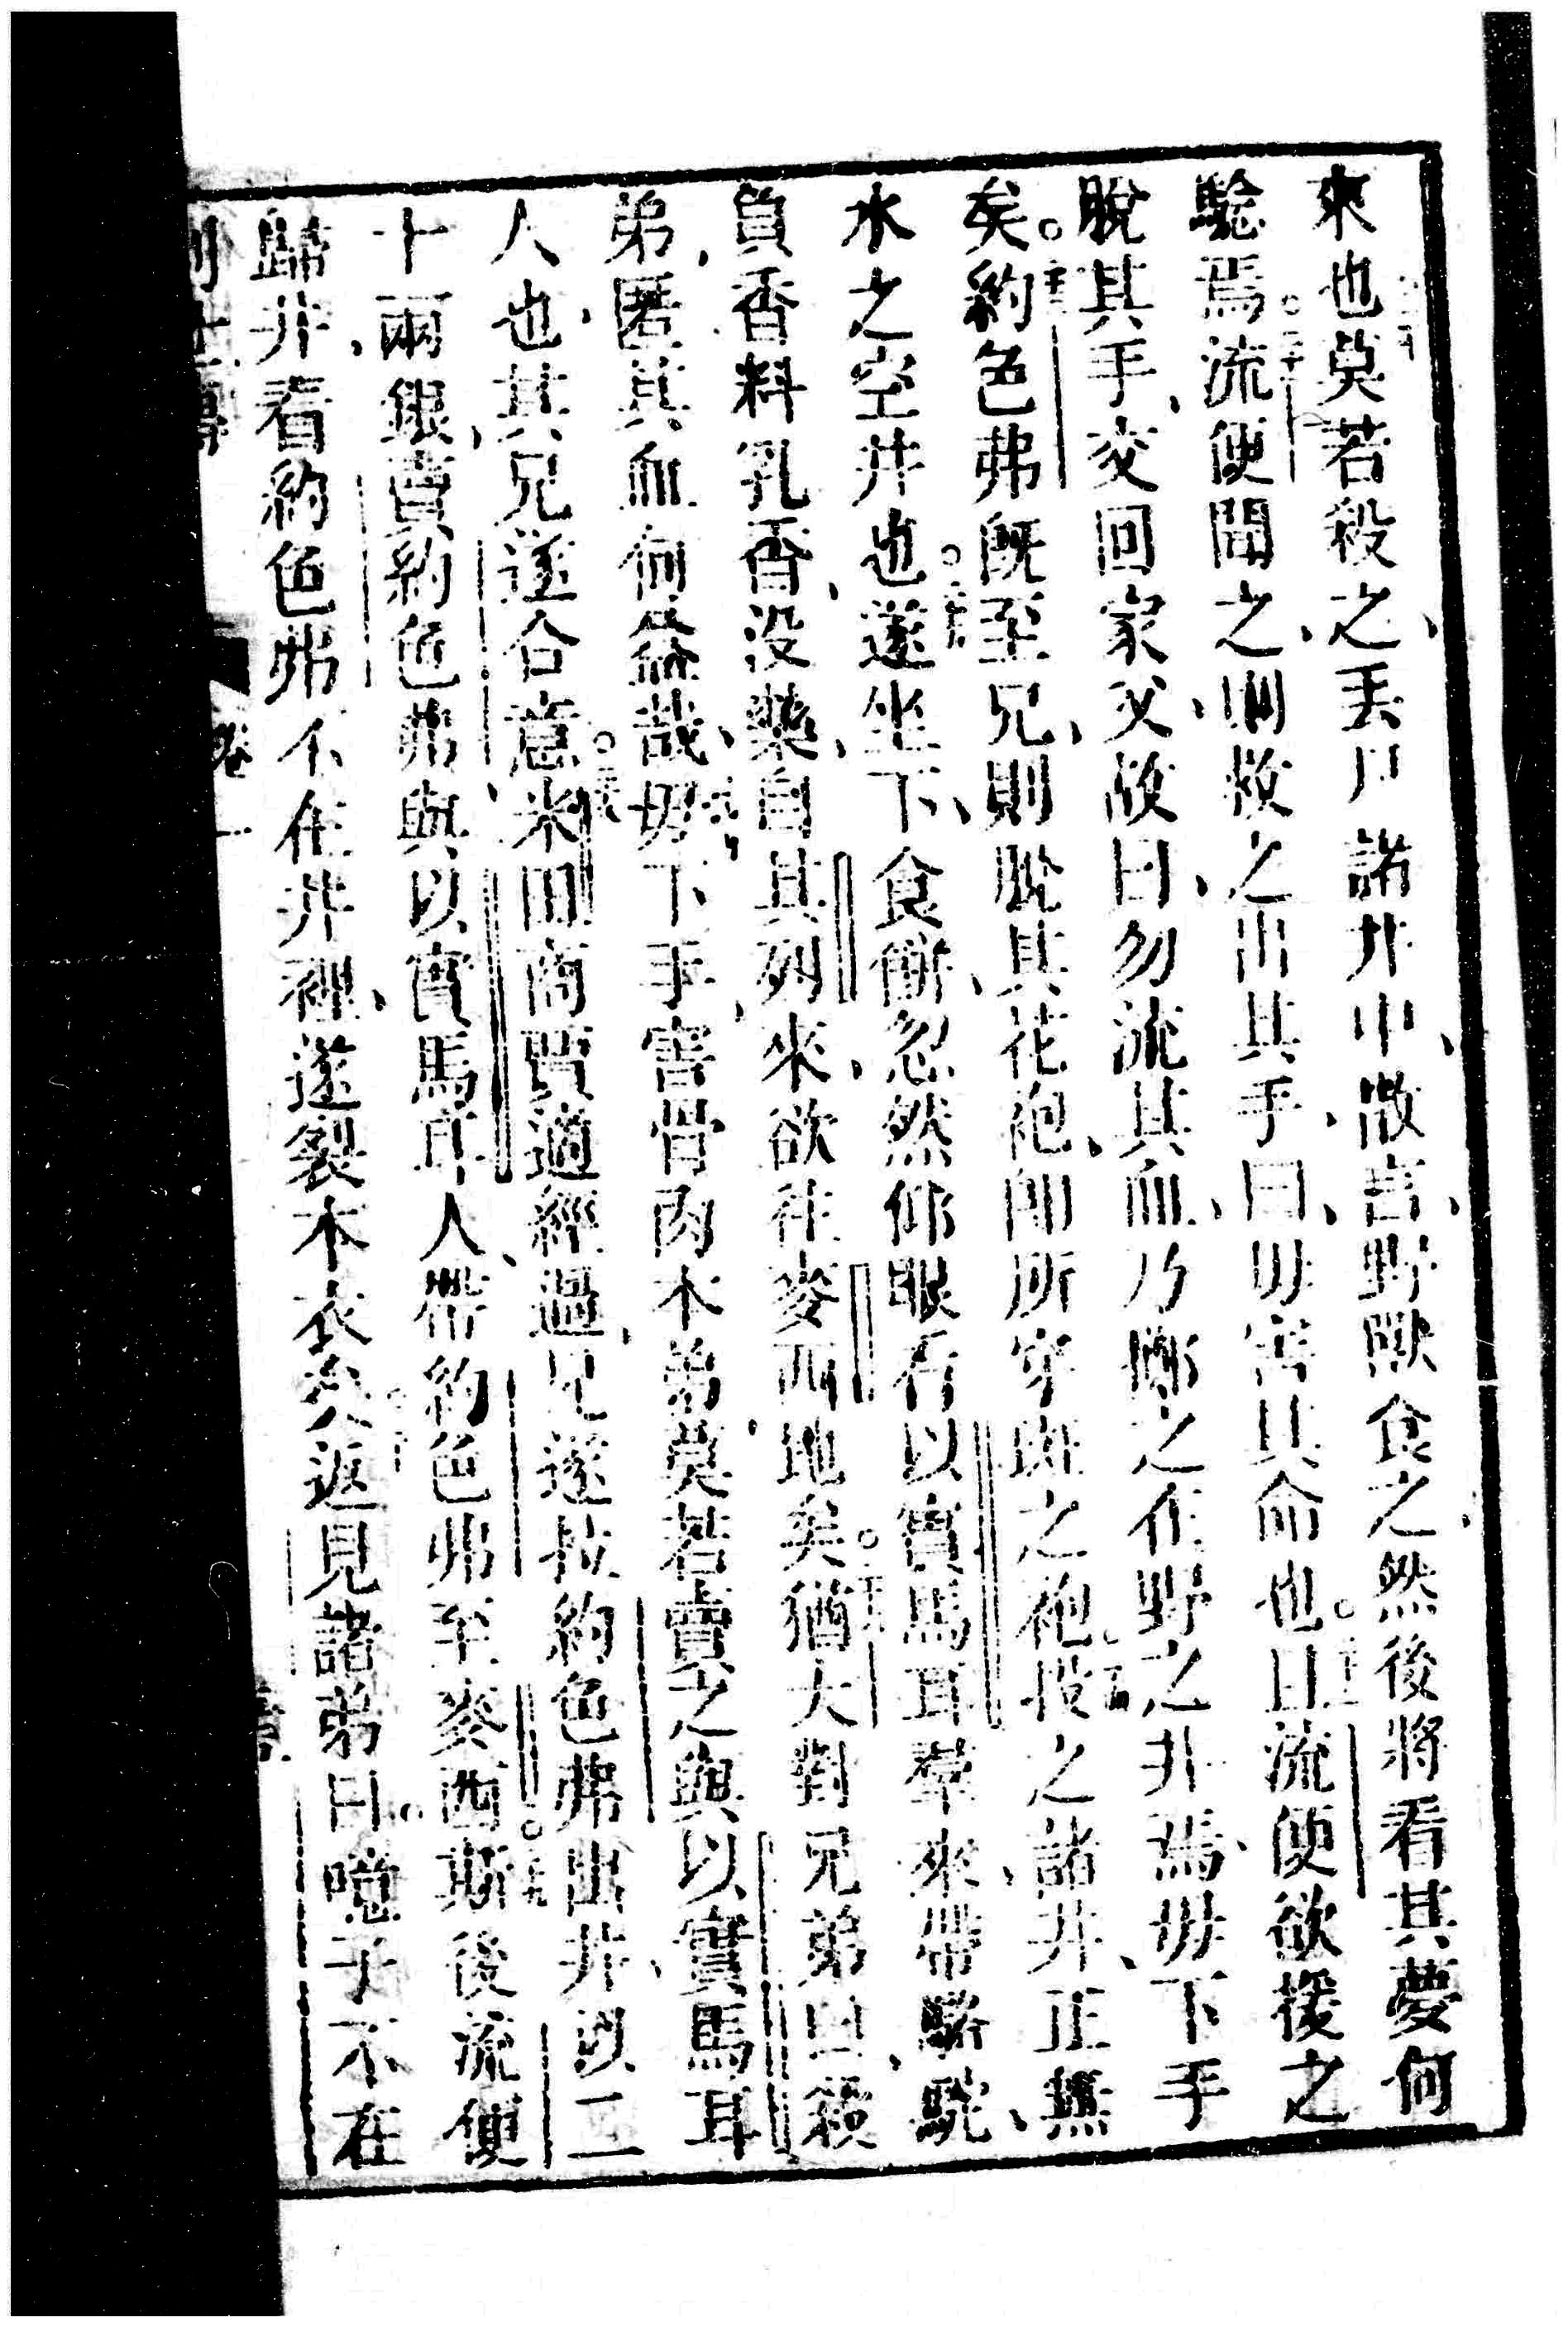 來也莫若殺之、丟尸諸井中、敢言、野獸食之、然後將看其夢何
騐焉。流便聞之、則救之出其手、曰、毋害其命也。且流便欲援之
脫其手、交回家父、故曰、勿流其血、乃擲之在野之井焉、毋下手
矣。約色弗旣至兄、則脫其花袍、卽所穿斑之袍、投之諸井、正無
水之空井也。遂坐下、食餅、忽然仰眼看以實馬耳羣來、帶駱駝、
負香料乳香、没藥、自其列來、欲往麥西地矣。猶大對兄弟曰、殺
弟、匿其血何益哉、毋下手、害骨肉本弟、莫若賣之與以實馬耳
人也、其兄遂合意。米田商賈適經過、兄遂拉約色弗出井、以二
十兩銀、賣約色弗與以實馬耳人、帶約色弗至麥西。斯後流便
歸井、看約色弗不在井裡、遂裂本衣矣。返見諸弟曰。噫子不在
卷一